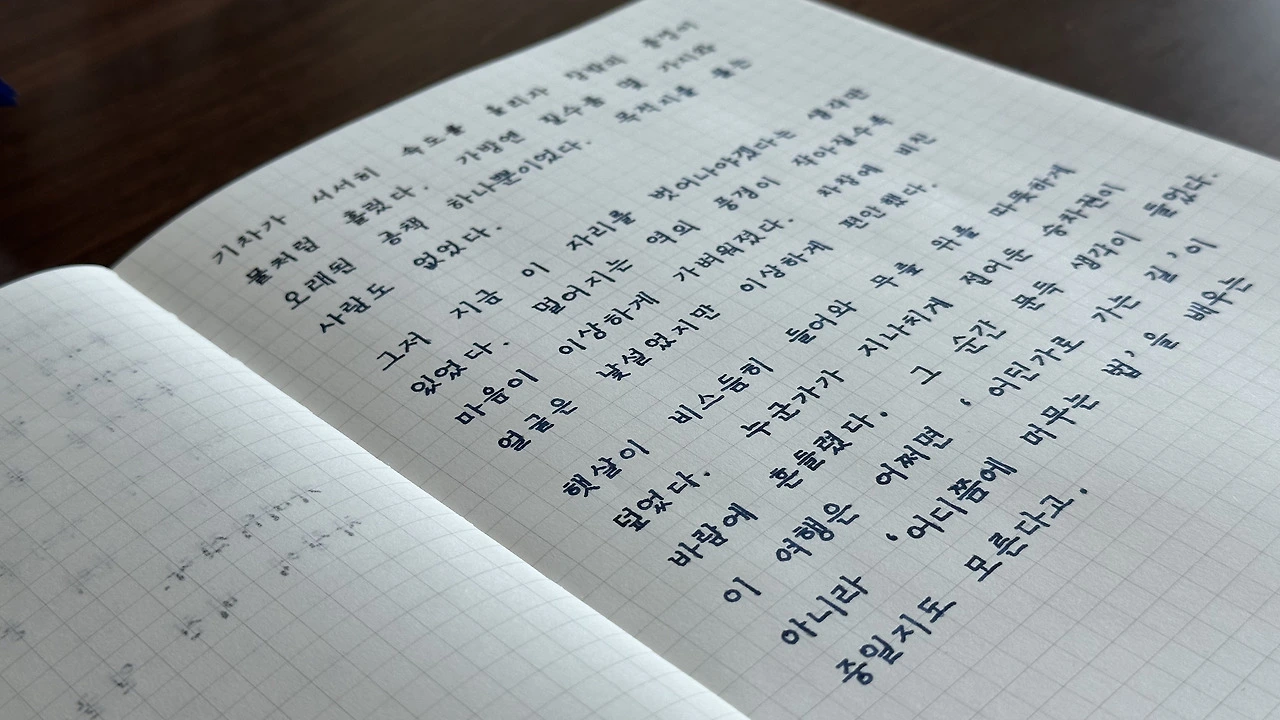 기차가 서서히 속도를 올리자 창밖의 풍경이
물처럼 흘렀다. 가방엔 필수품 몇 가지와
오래된 공책 하나뿐이었다. 목적지를 묻는
사람도 없었다.
그저 지금 이 자리를 벗어나야겠다는 생각만
있었다. 멀어지는 역의 풍경이 작아질수록
마음이 이상하게 가벼워졌다. 차창에 비친
얼굴은 낯설었지만 이상하게 편안했다.
햇살이 비스듬히 들어와 무릎 위를 따뜻하게
덮었다. 누군가가 지나치게 접어둔 승차권이
바람에 흔들렸다. 그 순간 문득 생각이 들었다.
이 여행은 어쩌면 ‘어딘가로 가는 길’이
아니라 ‘어디쯤에 머무는 법’을 배우는
중일지도 모른다고.